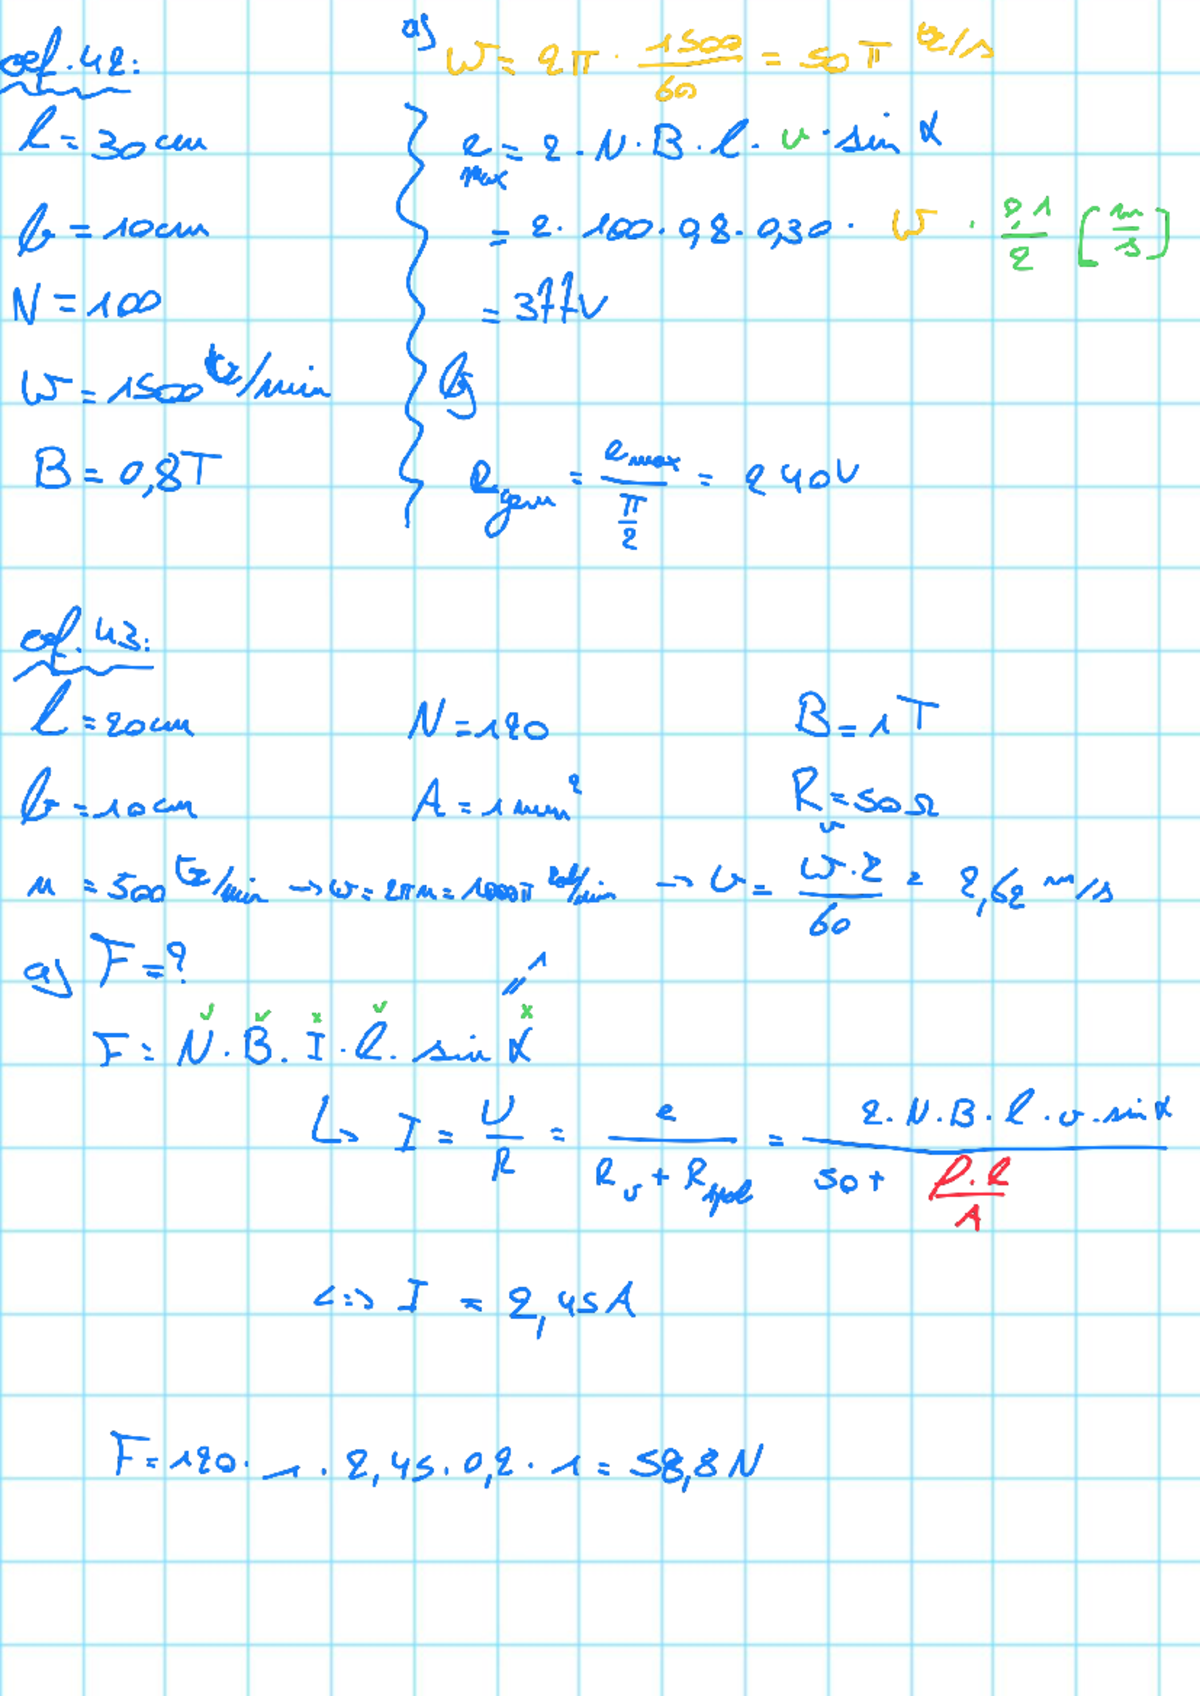 oef. 42:
l = 30cm
b = 10cm
N = 100
ω = 1500 tr/min
B = 0,8T
a)
ω = 2π · 1500/60 = 50π tr/s
e max = 2 · N · B · l · v · sin α
= 2 · 100 · 0,8 · 0,30 · ω · 0,1/2 [m/s]
= 377V
b)
e gem = e max / (π/2) = 240V
oef. 43:
l = 20cm N = 120 B = 1T
b = 10cm A = 1mm² R v = 50Ω
n = 500 tr/min → ω = 2πn = 1000π rad/min → v = ω·r/60 = 2,62 m/s
a) F = ?
F = N · B · I · l · sin α = 1
↳ I = U/R = e/(Rv + Rspoel) = 2 · N · B · l · v · sin α / (50 + ρ·l/A)
<=> I = 2,45A
F = 120 · 1 · 2,45 · 0,2 · 1 = 58,8N